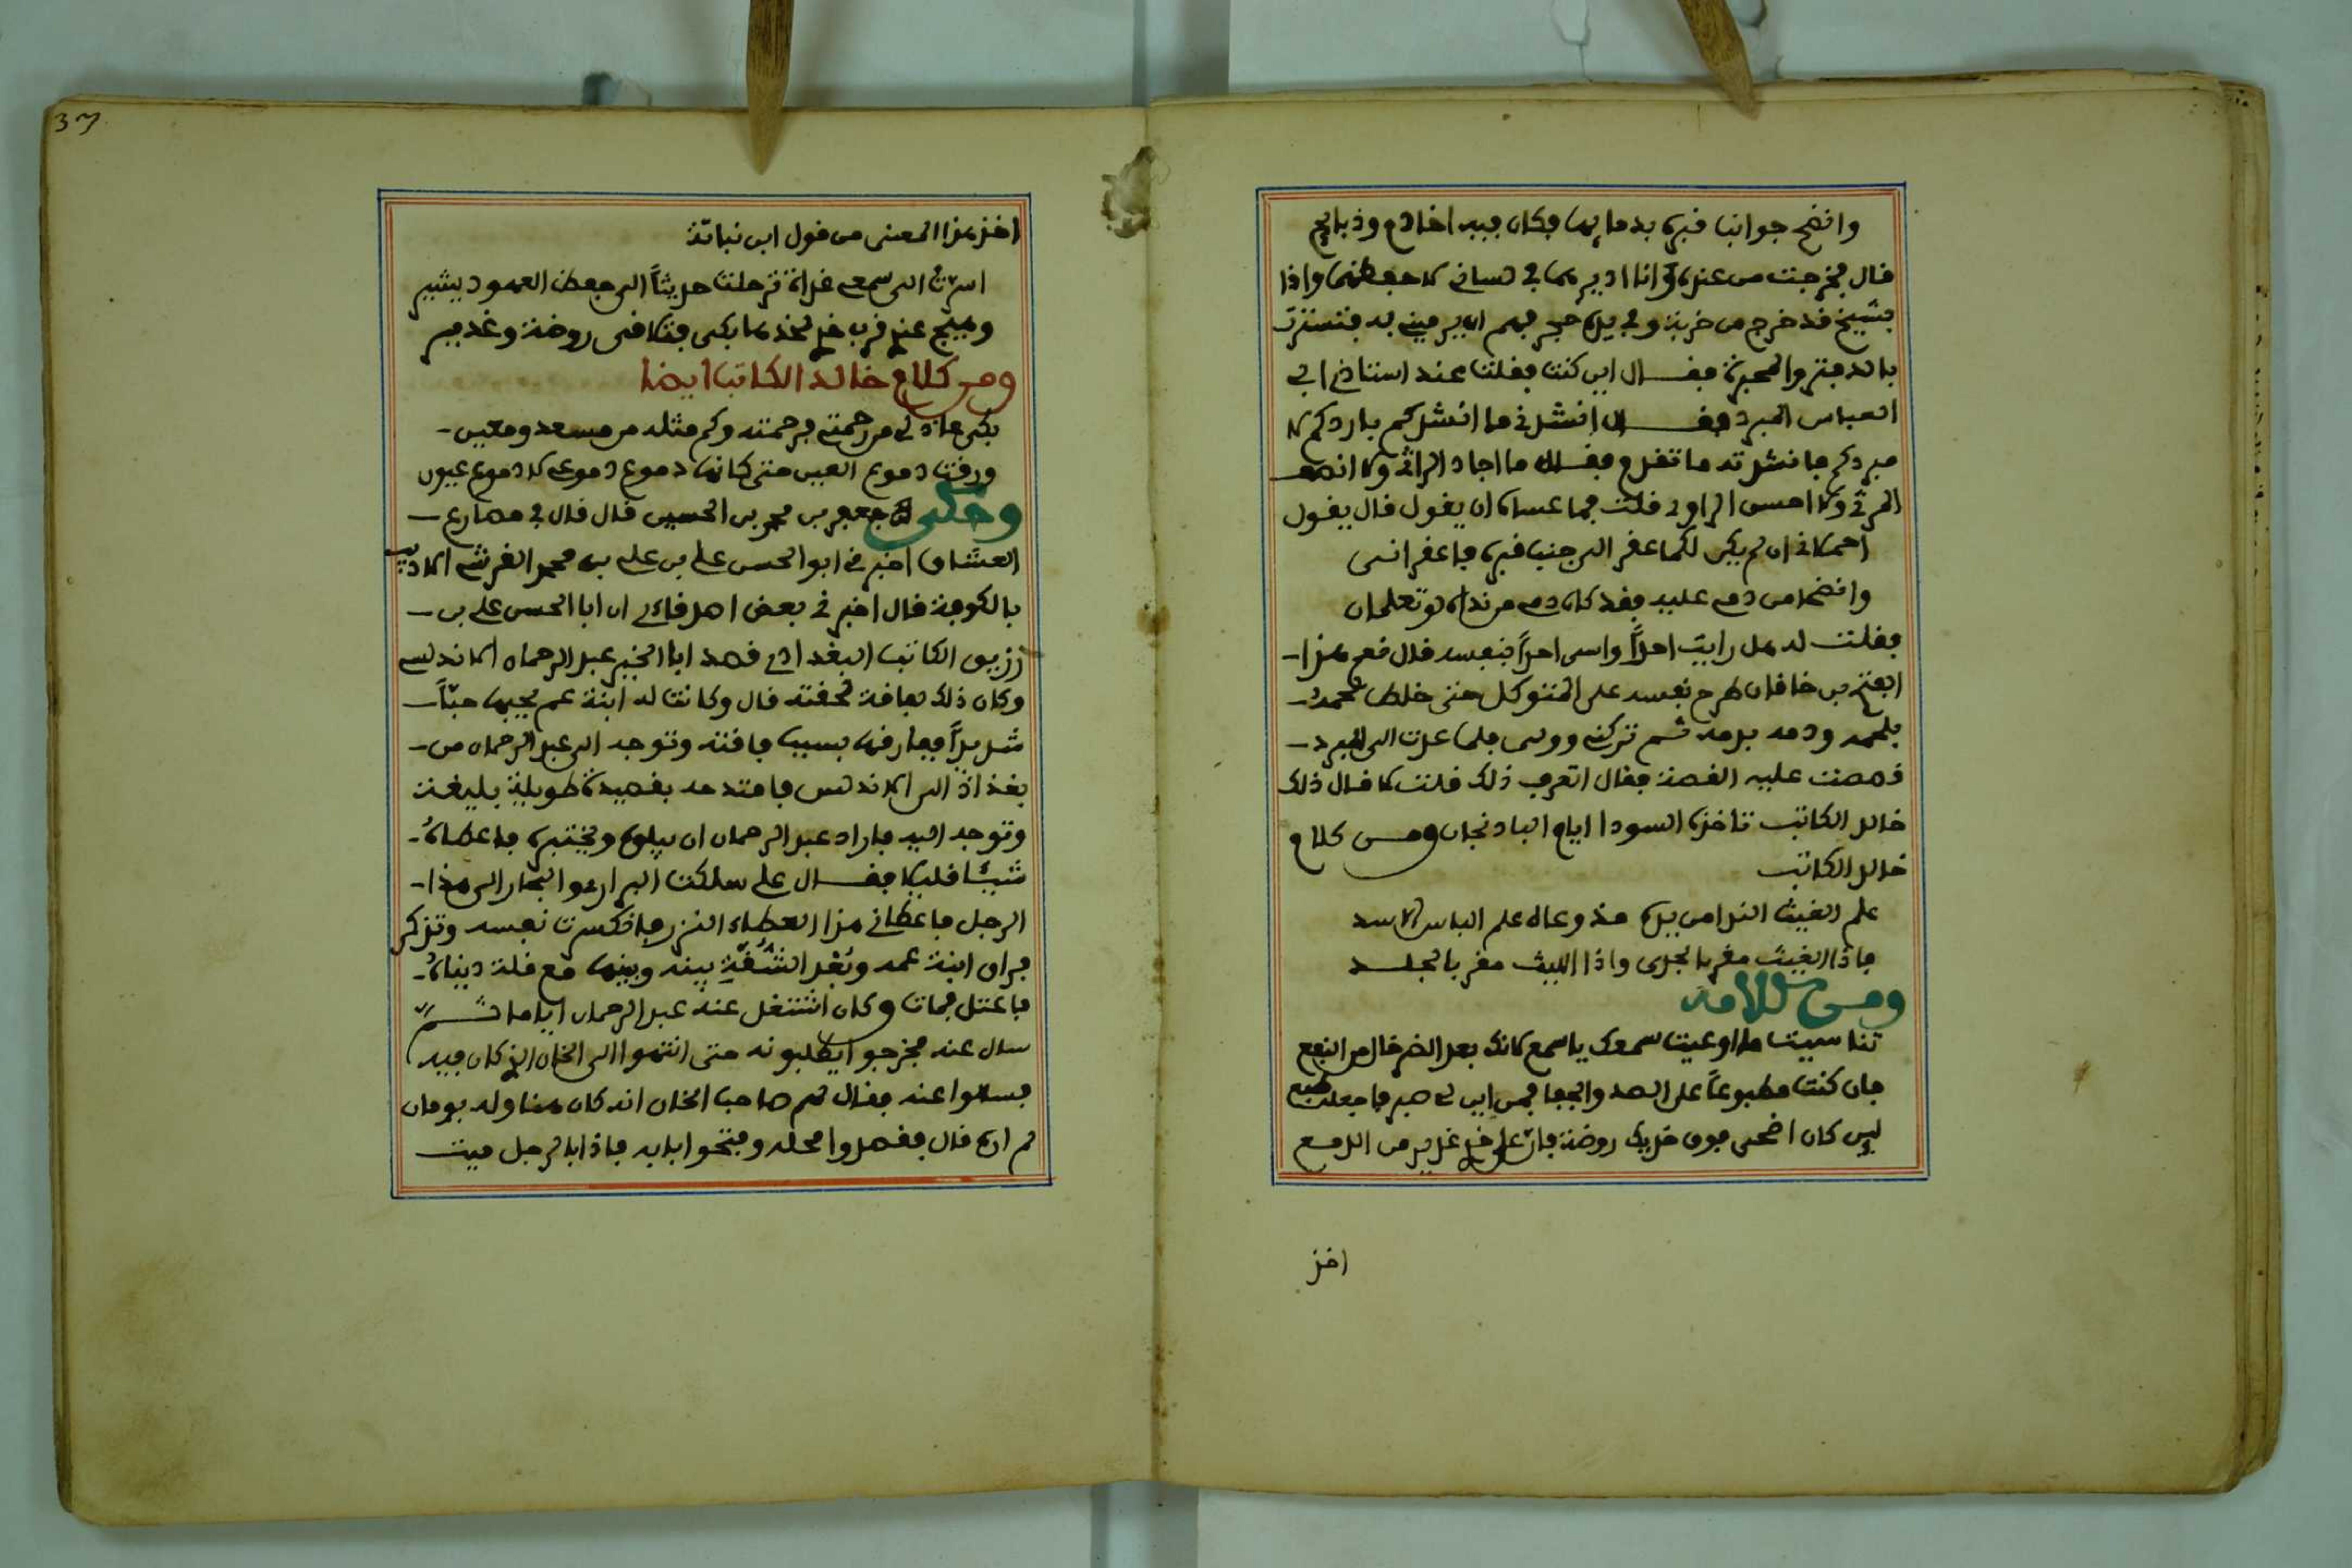 وانضح جوانب قبره بدمايها فكان فيه اخا دم وذبايح
قال فخرجت من عنده وانا اديرهما في لساني لاحفظهما واذا
بشيخ قد خرج من خربة وفي يده حجر فهم ان يرميني به فتسترت
بالدفتر والمحبرة فقال اين كنت فقلت عند استاذي ابي
العباس المبرد فقال انشدني ما انشدكم باردكم لا
مبردكم فانشدته ما تقدم فقال ما اجاد الراثي ولا انصف
المرثي ولا احسن الراوي قلت فما عساه ان يقول قال يقول
احملاني ان لم يكن لكما عقر الى جنب قبره فاعقراني
وانضحا من دمي عليه فقد كان دمي من نداه لو تعلمان
فقلت له هل رايت احداً واسى احداً بنفسه قال نعم هذا
الفتح بن خاقان طرح نفسه على المتوكل حتى خلط لحمه
بلحمه ودمه بدمه ثم تركني وولى فلما عدت الى المبرد
قصصت عليه القصة فقال اتعرف ذلك قلت لا قال ذلك
خالد الكاتب تاخذه السودا ايام الباذنجان ومن كلام
خالد الكاتب
علم الغيث الندا من يده مذ وعاه علم الباس الاسد
فاذا الغيث مقر بالجدى واذا الليث مقر بالجلد
ومن كلامه
تناسيت ما اوعيت سمعك يا سمع كانك بعد الضر خال من النفع
فان كنت مطبوعاً على الصد والجفا فمن اين لي صبر فاجعله طبع
لين كان اضحى فوق خديك روضة فان على خدي غدير من الدمع
اخذ
37
اخذ هذا المعنى من قول ابن نباتة
اسرت الى سمعي غداة ترحلت حديثاً الى حفظ العهود يشير
وهيج عندي قرب خدي لخدها بكى فتلاقى روضة وغدير
ومن كلام خالد الكاتب ايضا
بكى عاذلي من رحمتي فرحمته وكم مثله من مسعد ومعين
ورقت دموع العين حتى كانها دموع دموعي لا دموع عيون
وحكى جعفر بن محمد بن الحسين قال قال في مصارع
العشاق اخبرني ابو الحسن علي بن علي بن محمد القرشي الاديب
بالكوفة قال اخبرني بعض اصدقاءي ان ابا الحسن علي بن
زريق الكاتب البغدادي قصد ابا الخير عبد الرحمان الاندلسي
وكان ذلك لفاقة لحقته قال وكانت له ابنة عم يحبها حبّاً
شديداً ففارقها بسبب فاقته وتوجه الى عبد الرحمان من
بغداذ الى الاندلس فامتدحه بقصيدة طويلة بليغة
وتوجه اليه فاراد عبد الرحمان ان يبلوه ويختبره فاعطاه
شيئا قليلا فقال علي سلكت البراري والبحار الى هذا
الرجل فاعطاني هذا العطاء النزر فانكسرت نفسه وتذكر
فراق ابنة عمه وبُعد الشُّقَّةِ بينه وبينها مع قلة ديناه
فاعتل فمات وكان اشتغل عنه عبد الرحمان اياما ثم
سال عنه فخرجوا يطلبونه حتى انتهوا الى الخان الذي كان فيه
فسالوا عنه فقال لهم صاحب الخان انه كان هنا وله يومان
لم اره قال فقصدوا محله وفتحوا بابه فاذا بالرجل ميت